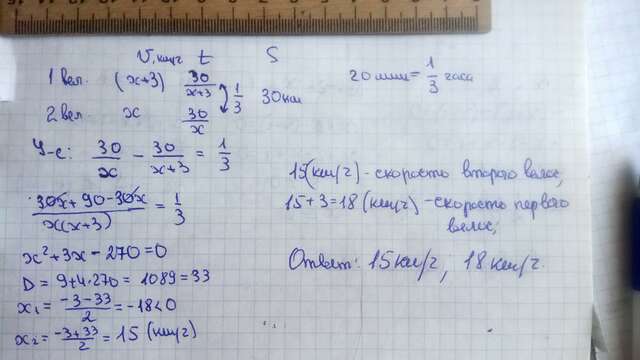 V, км/ч t S
1 вел. (x+3) 30/(x+3) 1/3 30 км
2 вел x 30/x
20 мин = 1/3 часа
У-е: 30/x - 30/(x+3) = 1/3
(30x + 90 - 30x)/(x(x+3)) = 1/3
x² + 3x - 270 = 0
D = 9 + 4·270 = 1089 = 33
x₁ = (-3-33)/2 = -18 < 0
x₂ = (-3+33)/2 = 15 (км/ч)
15 (км/ч) - скорость второго велос;
15 + 3 = 18 (км/ч) - скорость первого
велос;
Ответ: 15 км/ч; 18 км/ч.